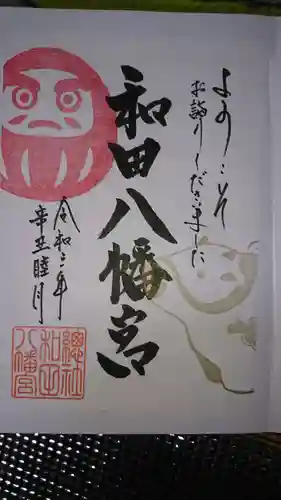 ようこそ
お詣りくださいました
和田八幡宮
令和三年
辛丑睦月
總社
和田
八幡宮